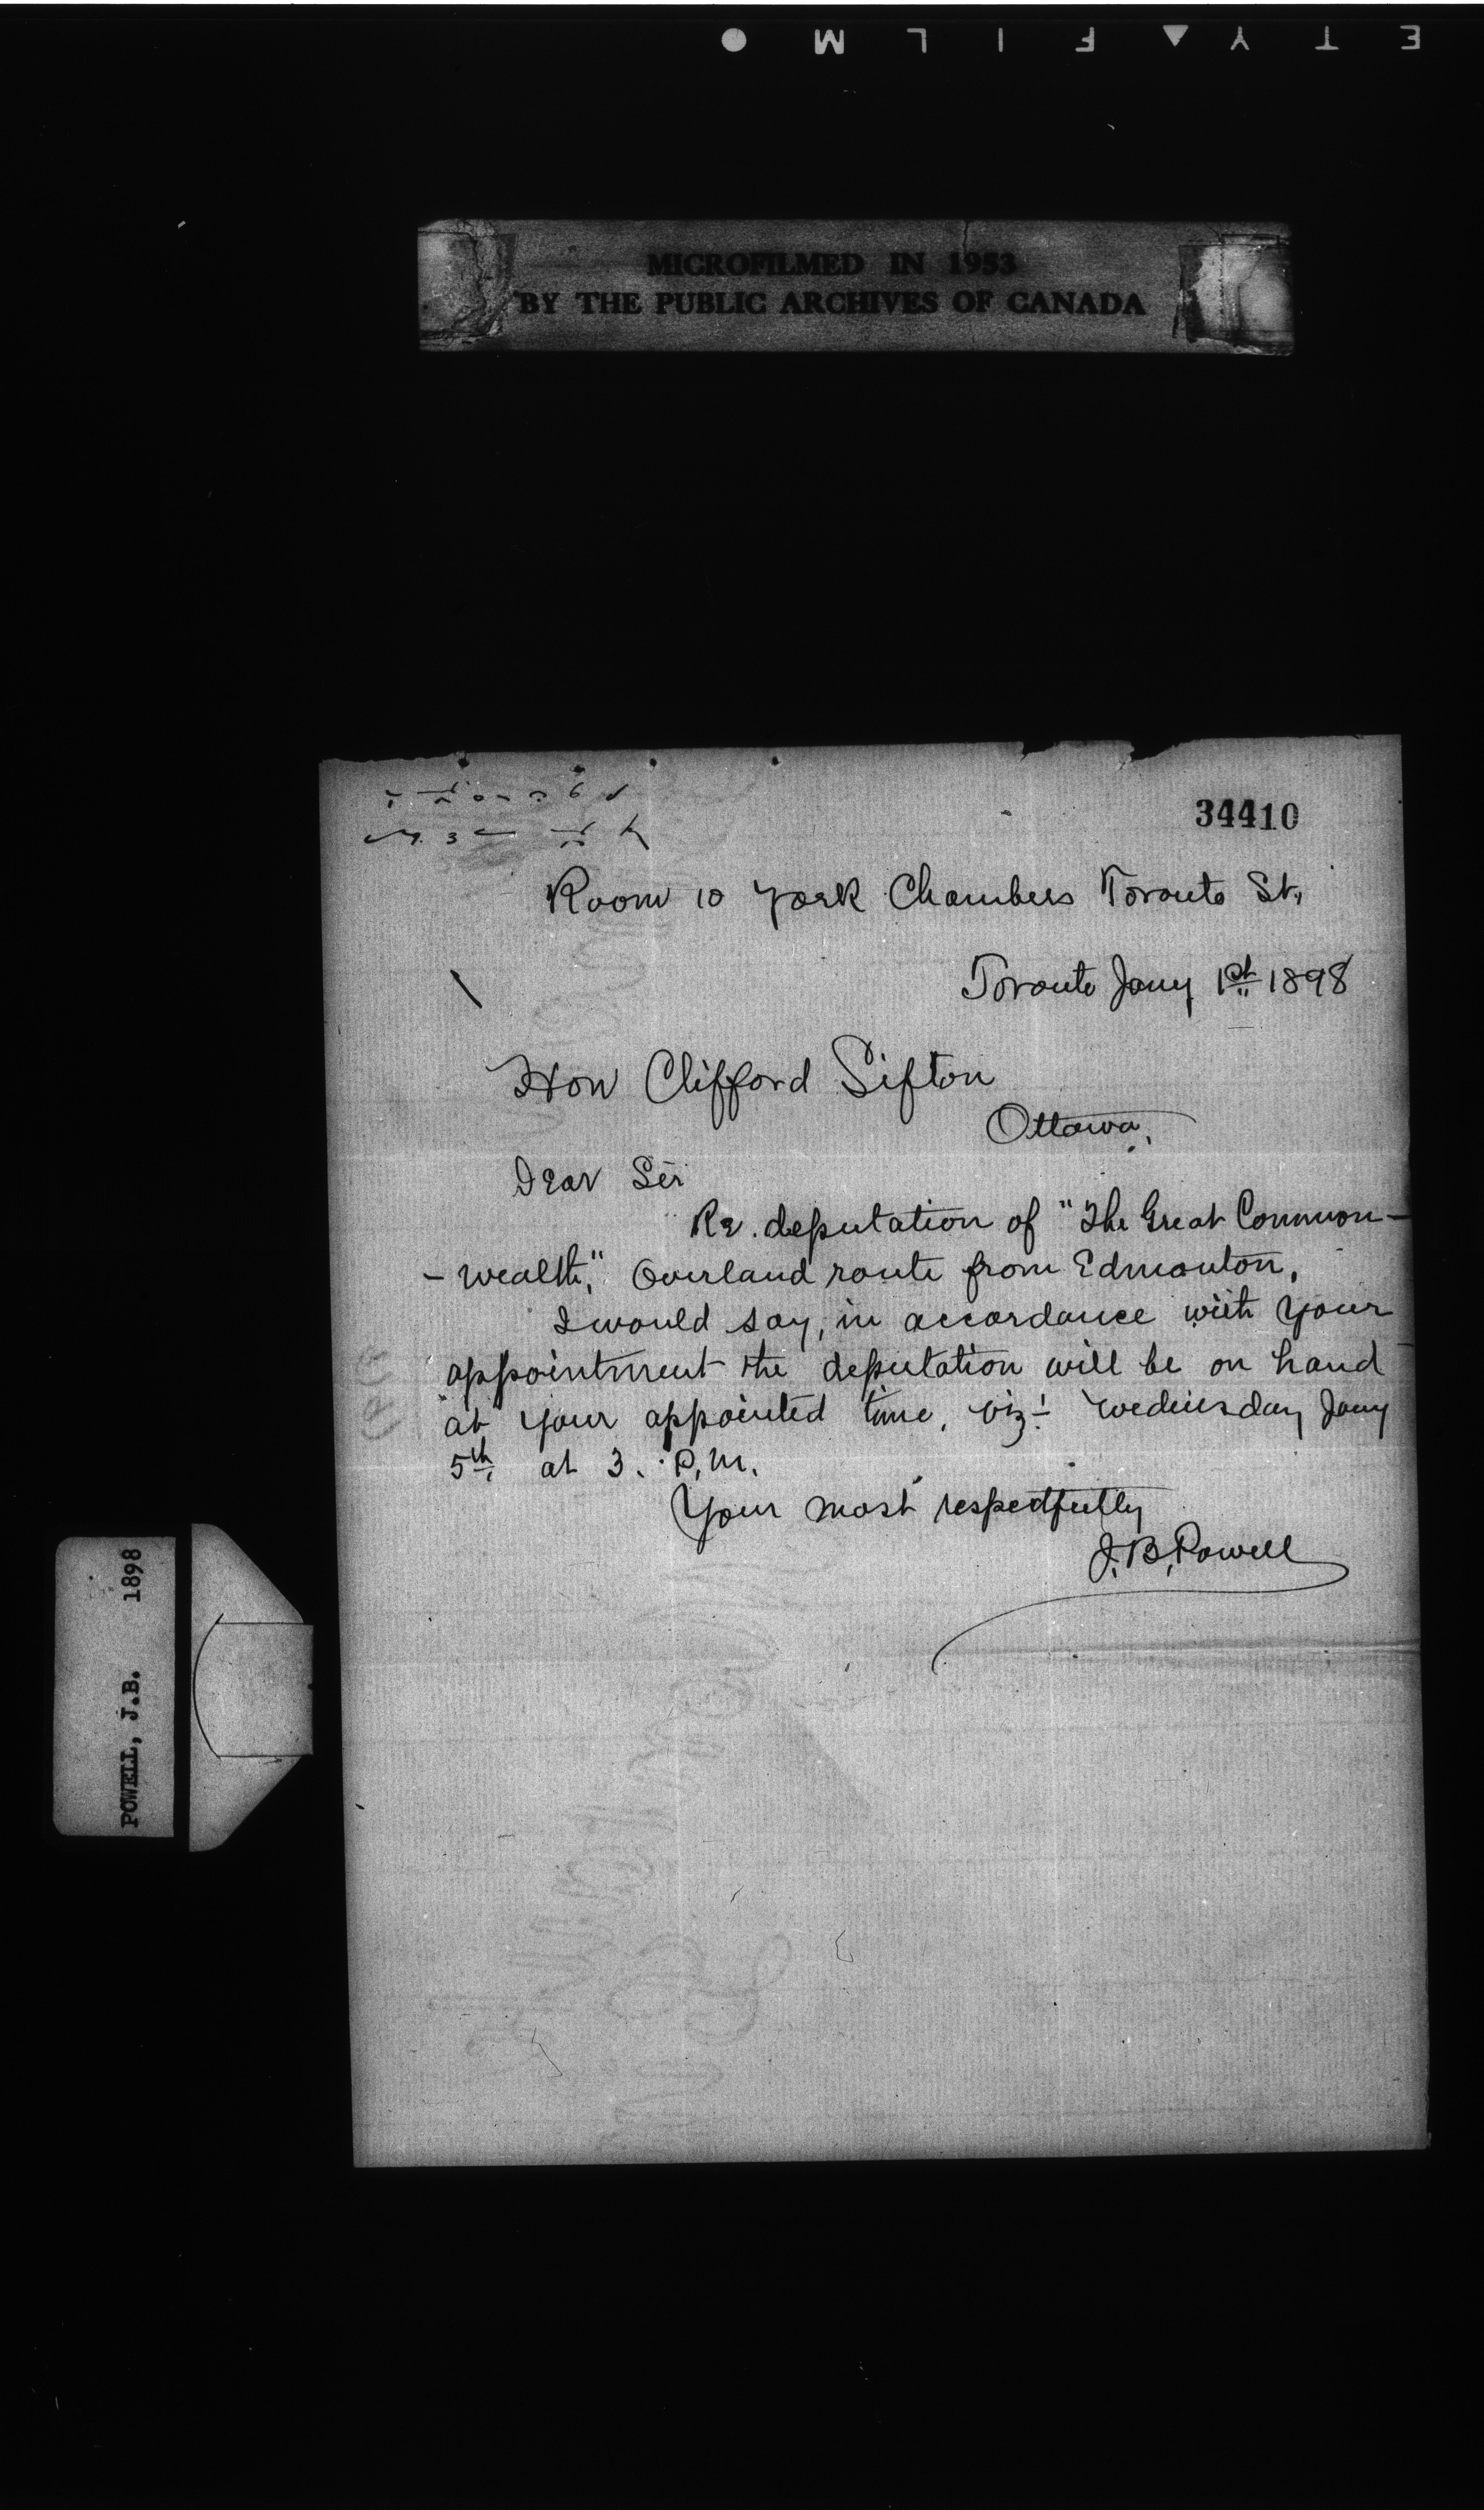 E T Y ▲ F I L M ●
MICROFILMED IN 1953
BY THE PUBLIC ARCHIVES OF CANADA
34410
Room 10 York Chambers Toronto St,
Toronto Jany 1st 1898
Hon Clifford Sifton
Ottawa,
Dear Sir
Re. deputation of "The Great Common-
- wealth," Overland route from Edmonton,
I would say, in accordance with your
appointment the deputation will be on hand
at your appointed time, viz:- Wednesday Jany
5th, at 3. P.M.
Your most respectfully
J.B. Powell
POWELL, J.B. 1898